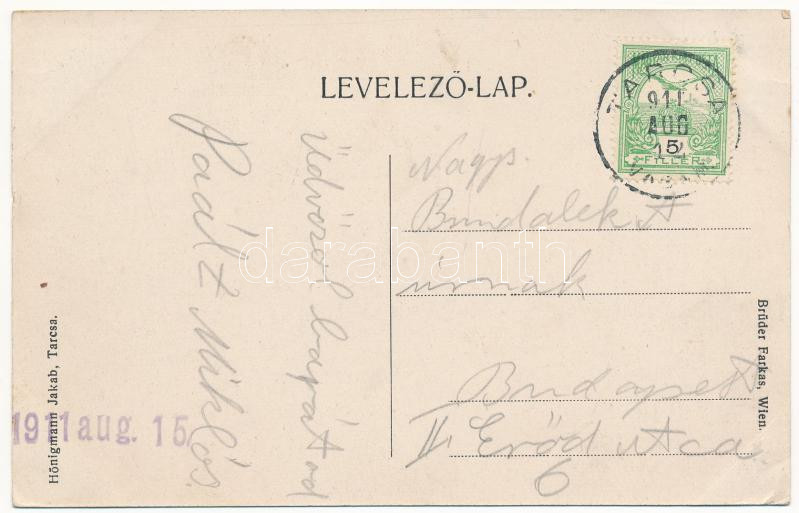 LEVELEZŐ-LAP.
TARCSA
911
AUG
14
VAS
5
FILLER
Nagys.
Bundalek A
úrnak
Budapest
II. Erőd utca
6
Üdvözöl barátod
Paál Z Miklós
1911 aug. 15.
Hönigmann Jakab, Tarcsa.
Brüder Farkas, Wien.
darabanth